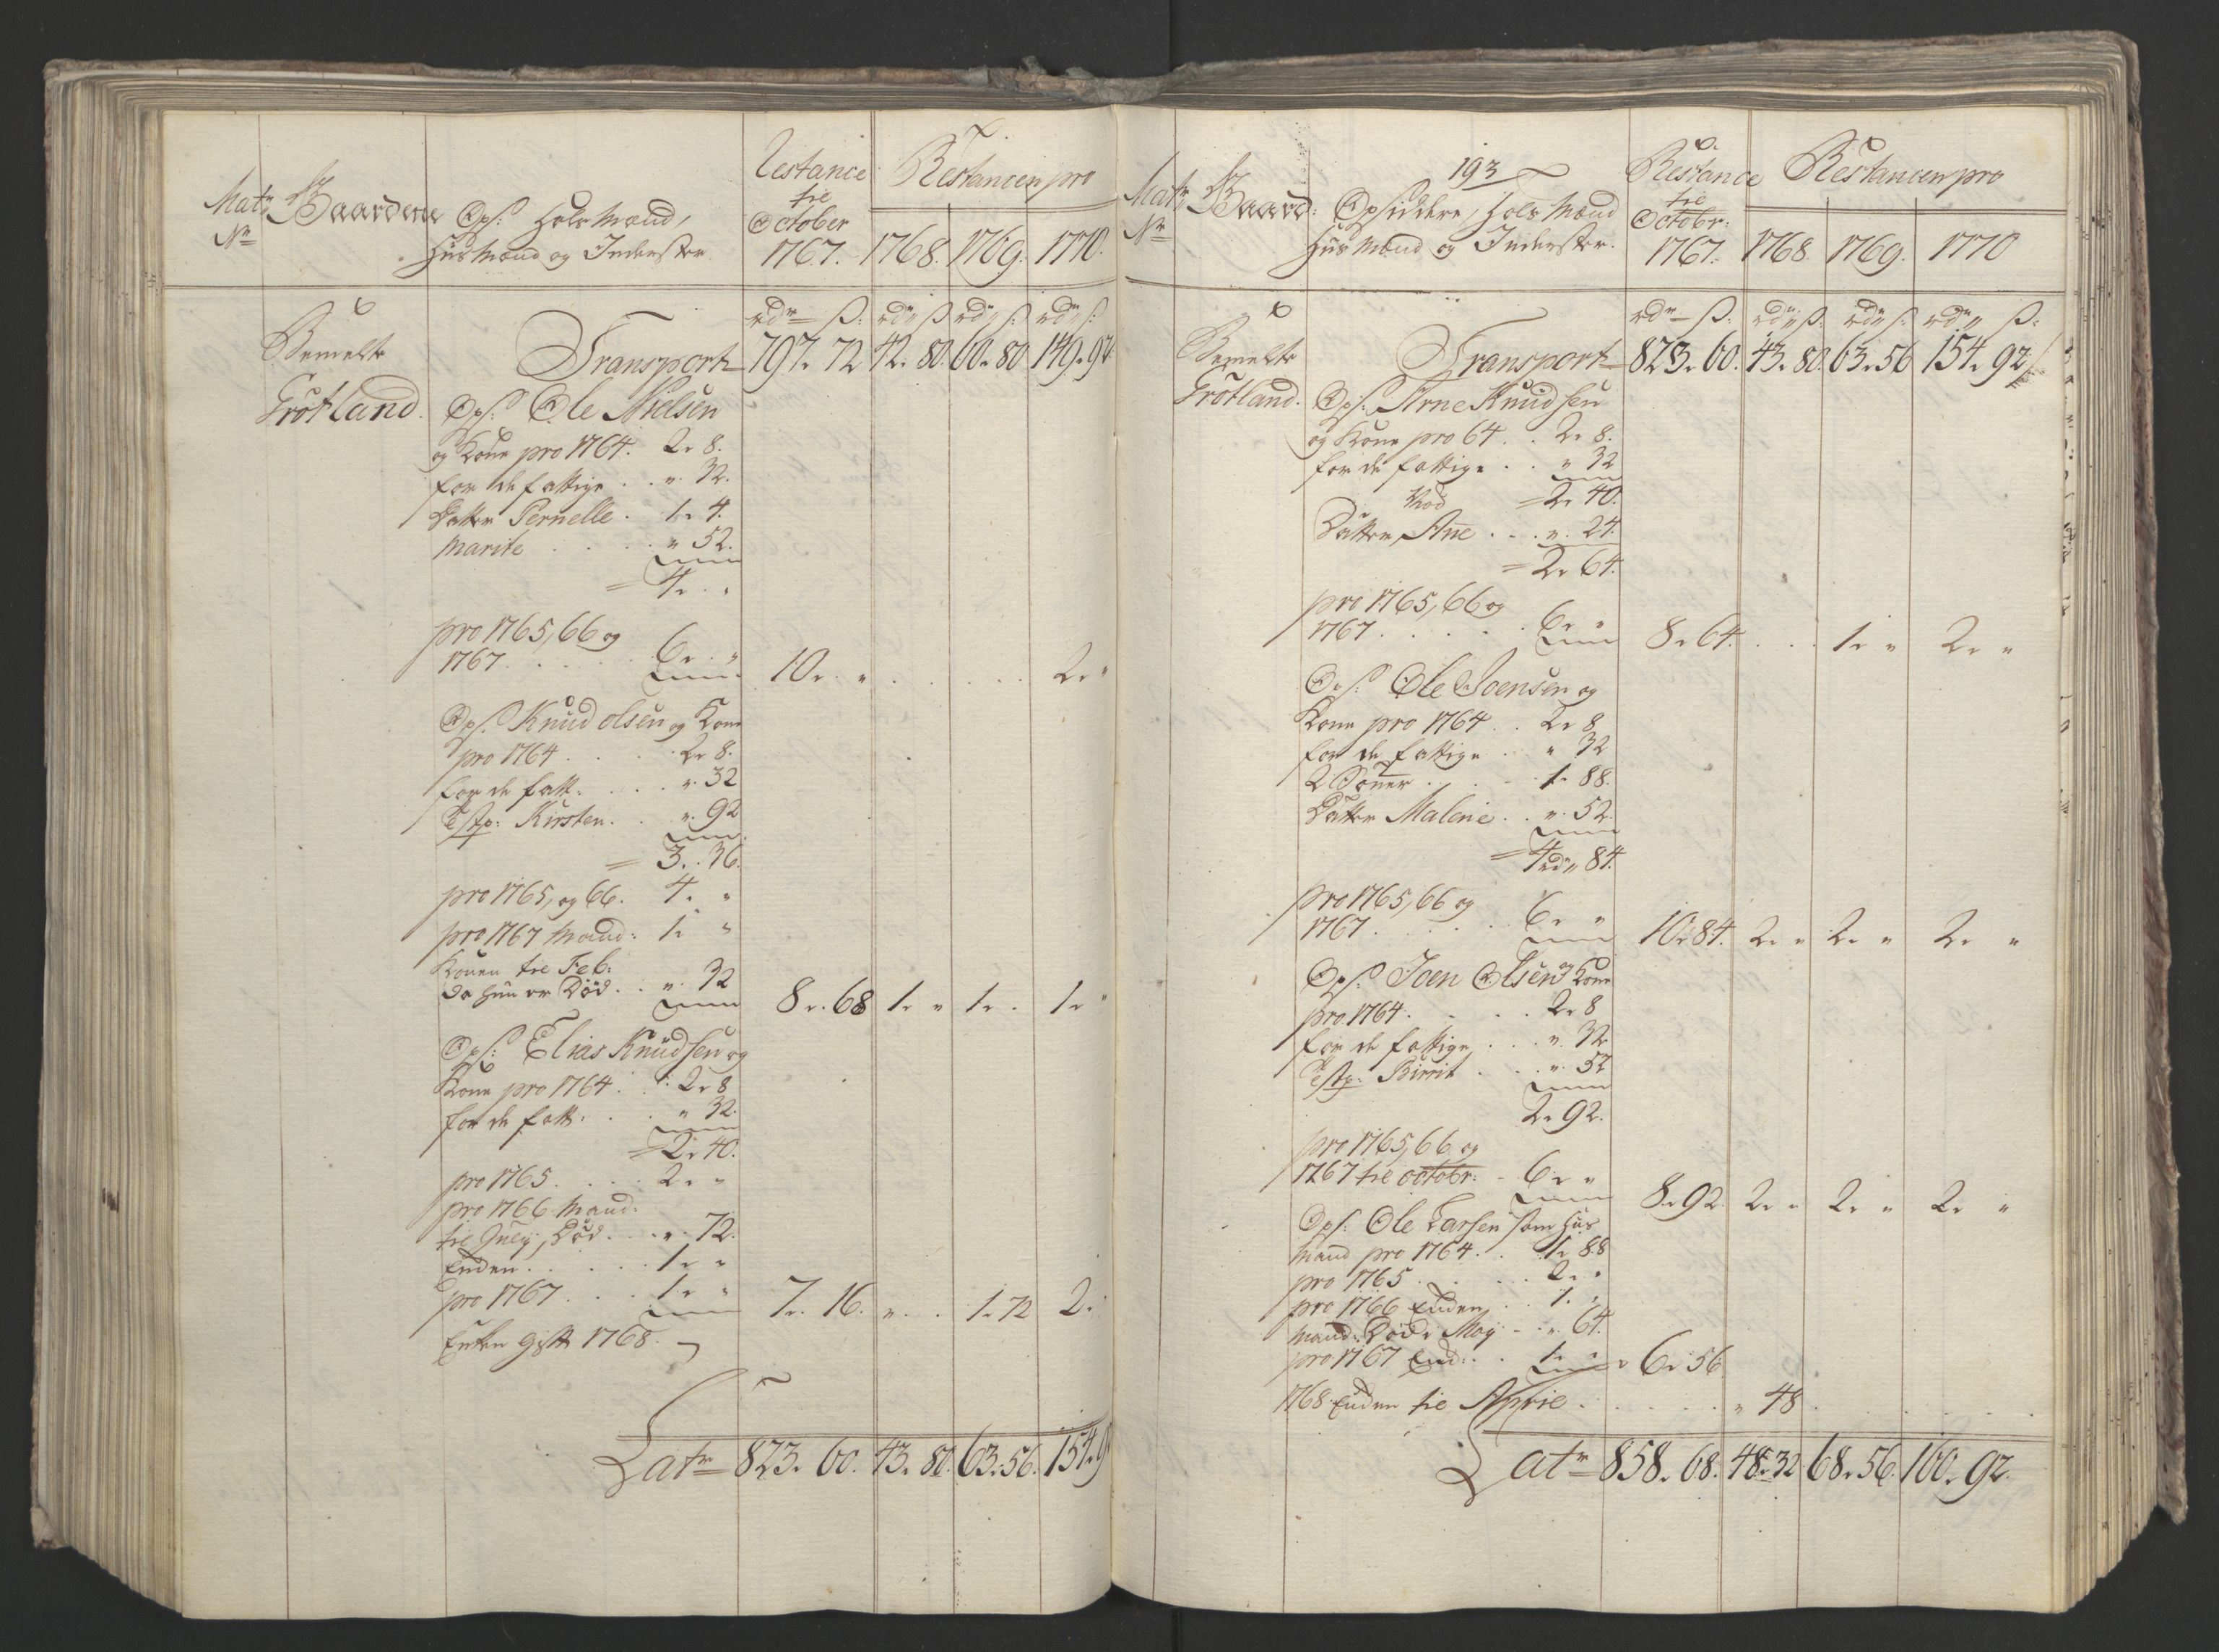 Matr Nr
Gaardene
Ops: Hols Mænd,
Huus Mænd og Inderster
Restance til October 1767.
Restancen pro
1768. 1769. 1770.
rdr ß: rdr ß rdr ß: rdr ß:
Bemelte Transport 797. 72 42. 80. 60. 80 149. 92
Grøtland. Ops: Ole Nielsen
og Kone pro 1764. 2. 8.
for de fattige . . „ 32.
Datter Pernelle . 1. 4.
Marite . . . . „ 52.
= 4. „
pro 1765, 66 og
1767 . . . . . 6. „ 10. „ . . . . . 2. „
Ops: Knud Olsen og Kone
pro 1764 . . . . 2. 8.
for de fatt: . . . „ 32
Tstp: Kirsten . . „ 92
= 3. 36.
pro 1765, og 66. 4. „
pro 1767 Mand: 1. „
Konen til Feb:
da hun er Død . . „ 32 8. 68 1. „ 1. „ 1. „
Ops: Elias Knudsen og
Kone pro 1764 . . 2. 8
for de fatt: . . „ 32.
= 2. 40.
pro 1765 . . . . 2. „
pro 1766 Mand:
til Juey, Død . . . „ 72.
Enken . . . . . 1. „
pro 1767 . . . 1. „ 7. 16. „ . . 1. 72 2. „
Enken gift 1768.
Latr 823. 60. 43. 80. 63. 56. 154. 9
193
Matr Nr
Gaard:
Opsiddere, Hols Mænd
Huus Mænd og Inderster.
Restance til Octobr: 1767.
Restancen pro
1768 1769. 1770
rdr ß: rdr ß: rdr ß: rdr ß:
Bemelte Transport 823. 60. 43. 80. 63. 56 154. 92
Grøtland. Ops: Arne Knudsen
og Kone pro 64 . . 2. 8.
for de fattige . . „ 32
= 2. 40.
Datter Ane . . . „ 24.
= 2. 64.
pro 1765, 66 og
1767 . . . . . 6. „ 8. 64. . . . 1. „ 2. „
Ops: Ole Joensen og
Kone pro 1764 . . 2. 8
for de fattige . . „ 32
2 Sønner . . . . 1. 88.
Datter Malene . . „ 52.
= 4 rdr 84.
pro 1765, 66 og
1767 . . . . . 6. „ 10. 84. 2. „ 2. „ 2. „
Ops: Joen Olsen og Kone
pro 1764 . . . . 2. 8
for de fattige . . . „ 32
Tstp: Birrit . . . „ 52
2. 92.
pro 1765, 66 og
1767 til octobr: - 6. „ 8. 92. 2. „ 2. „ 2. „
Ops: Ole Larsen som Huus
Mand pro 1764 . . 1. 88
pro 1765 . . . . 2. „
pro 1766 Enken . . 1. „
Mand: Død i May - . „ 64.
pro 1767 Enk: . . 1. „ 6. 56
1768 Enken til April . . . . . . „ 48 . . . .
Latr 858. 68. 48. 32 68. 56. 160. 92.